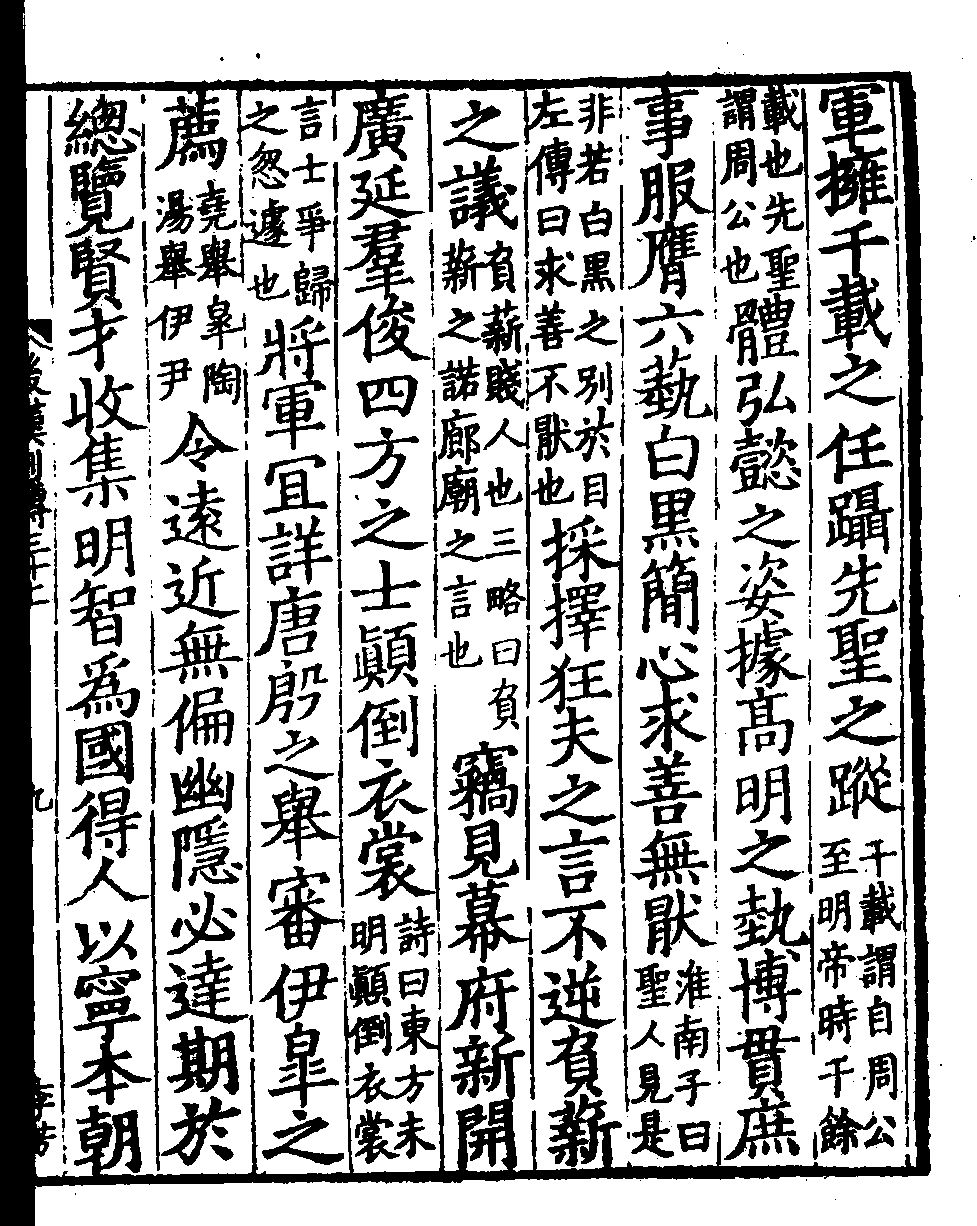 軍擁千載之任躡先聖之蹤千載謂自周公至明帝時千餘
載也先聖謂周公也體弘懿之姿據髙明之埶博貫庶
事服膺六蓺白黒簡心求善無猒淮南子曰聖人見是
非若白黒之別於目左傳曰求善不猒也採擇狂夫之言不逆負薪
之議負薪賤人也三略曰負薪之諾廊廟之言也竊見幕府新開
廣延羣俊四方之士顚倒衣裳詩曰東方未明顚倒衣裳
言士爭歸之怱遽也將軍冝詳唐殷之舉審伊皐之
薦堯舉皐陶湯舉伊尹令遠近無偏幽隱必達期於
總覽賢才收集明智爲國得人以寧本朝